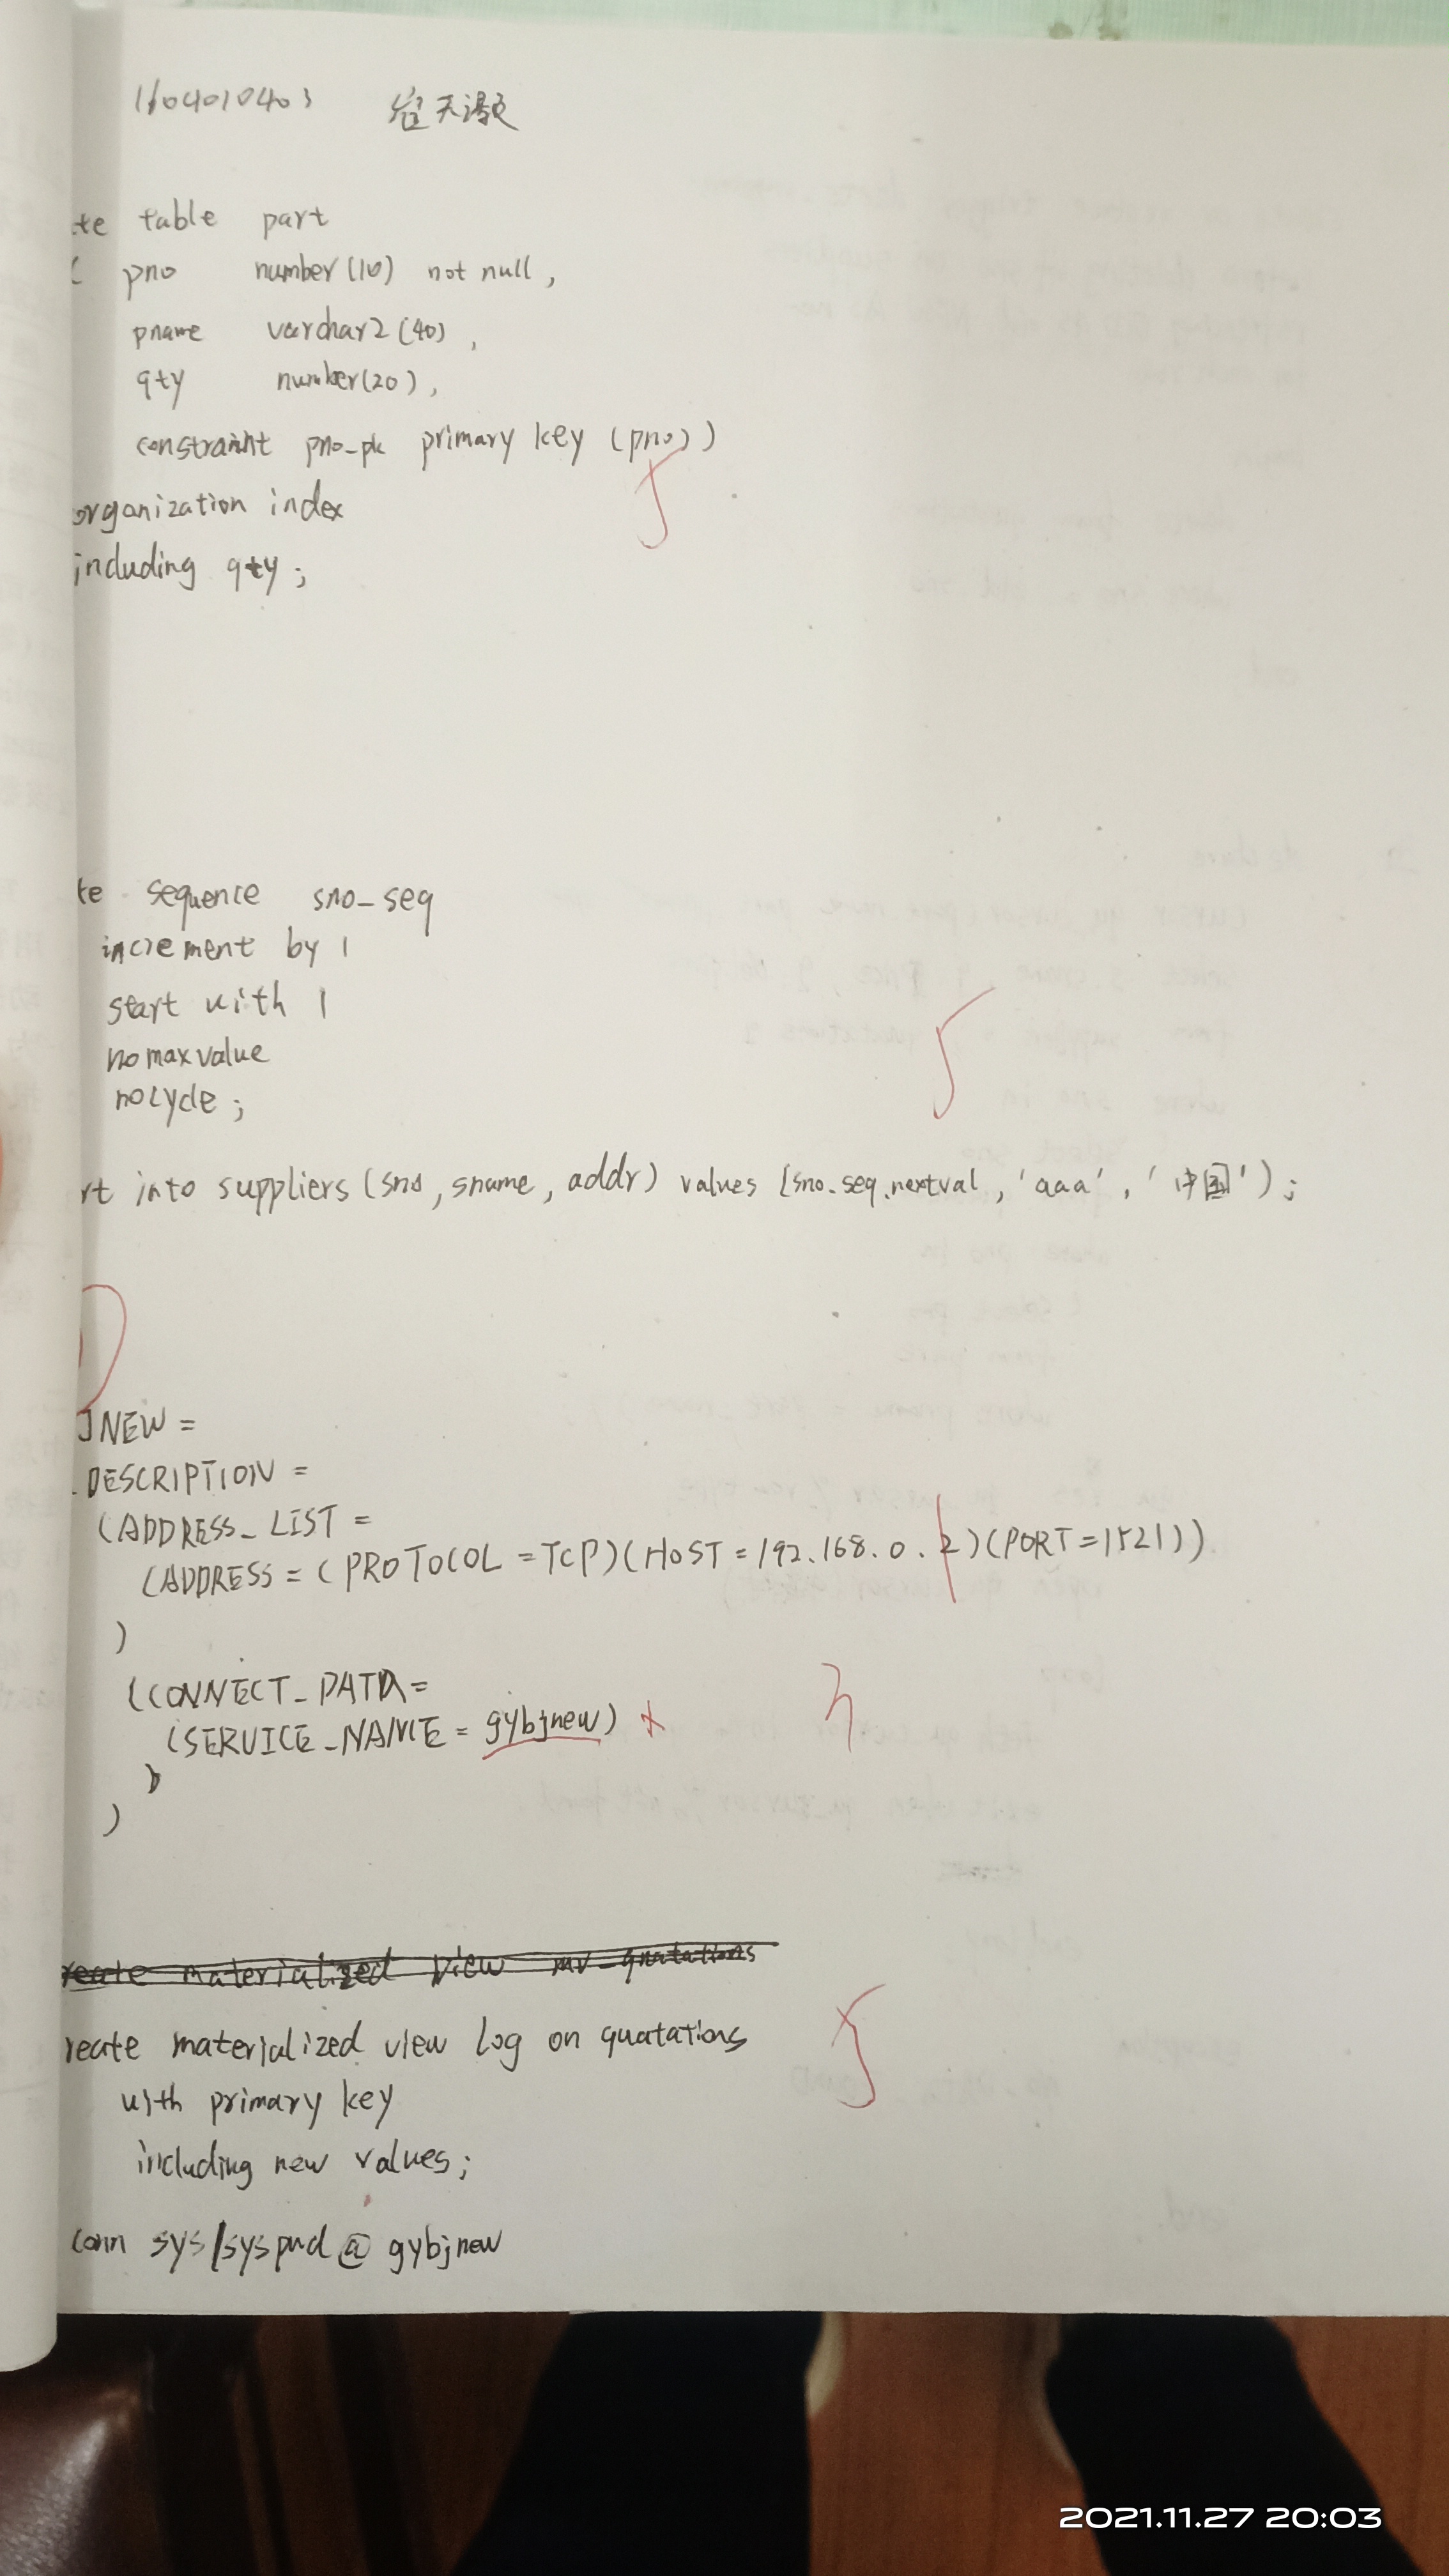 1604010403 天
te table part
( pno number(10) not null,
pname varchar2(40),
qty number(20),
constraint pno_pk primary key (pno))
organization index
including qty;
te sequence sno_seq
increment by 1
start with 1
nomaxvalue
nocycle;
rt into suppliers (sno, sname, addr) values (sno_seq.nextval, 'aaa', '中国');
JNEW =
DESCRIPTION =
(ADDRESS_LIST =
(ADDRESS = (PROTOCOL = TCP)(HOST = 192.168.0.2)(PORT = 1521))
)
(CONNECT_DATA =
(SERVICE_NAME = gybjnew)
)
)
reate materialized view mv_quatations
reate materialized view log on quatations
with primary key
including new values;
conn sys/syspwd@gybjnew
2021.11.27 20:03